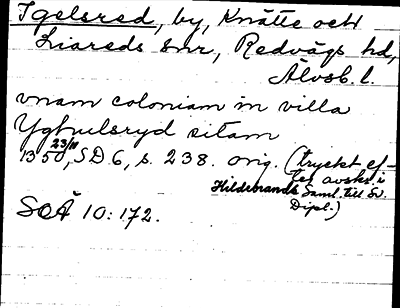 Igelsred, by, Knätte och
Liareds snr, Redvägs hd,
Älvsb. l.
vnam coloniam in villa
Yghulsryd sitam
1350 23/11, SD 6, s. 238. orig. (tryckt ef-
ter avskr. i
Hildebrands Saml. till Sv.
Dipl.)
SOÄ 10:172.